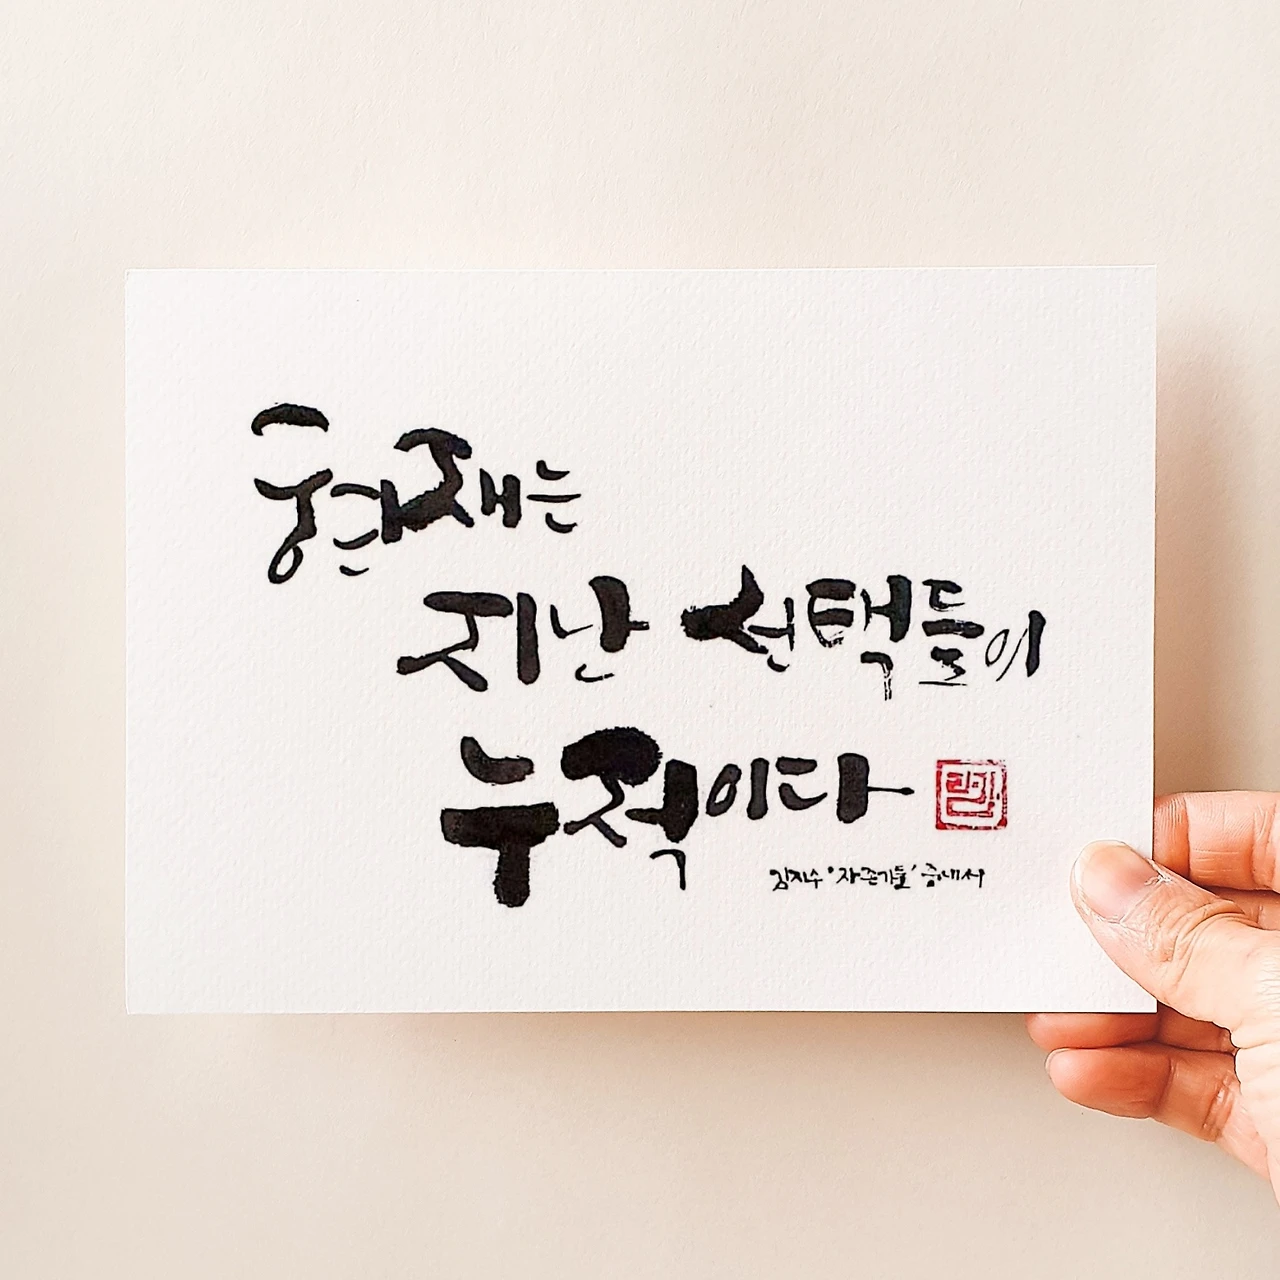 현재는
지난 선택들이
누적이다
김지수 '자존가들' 중에서